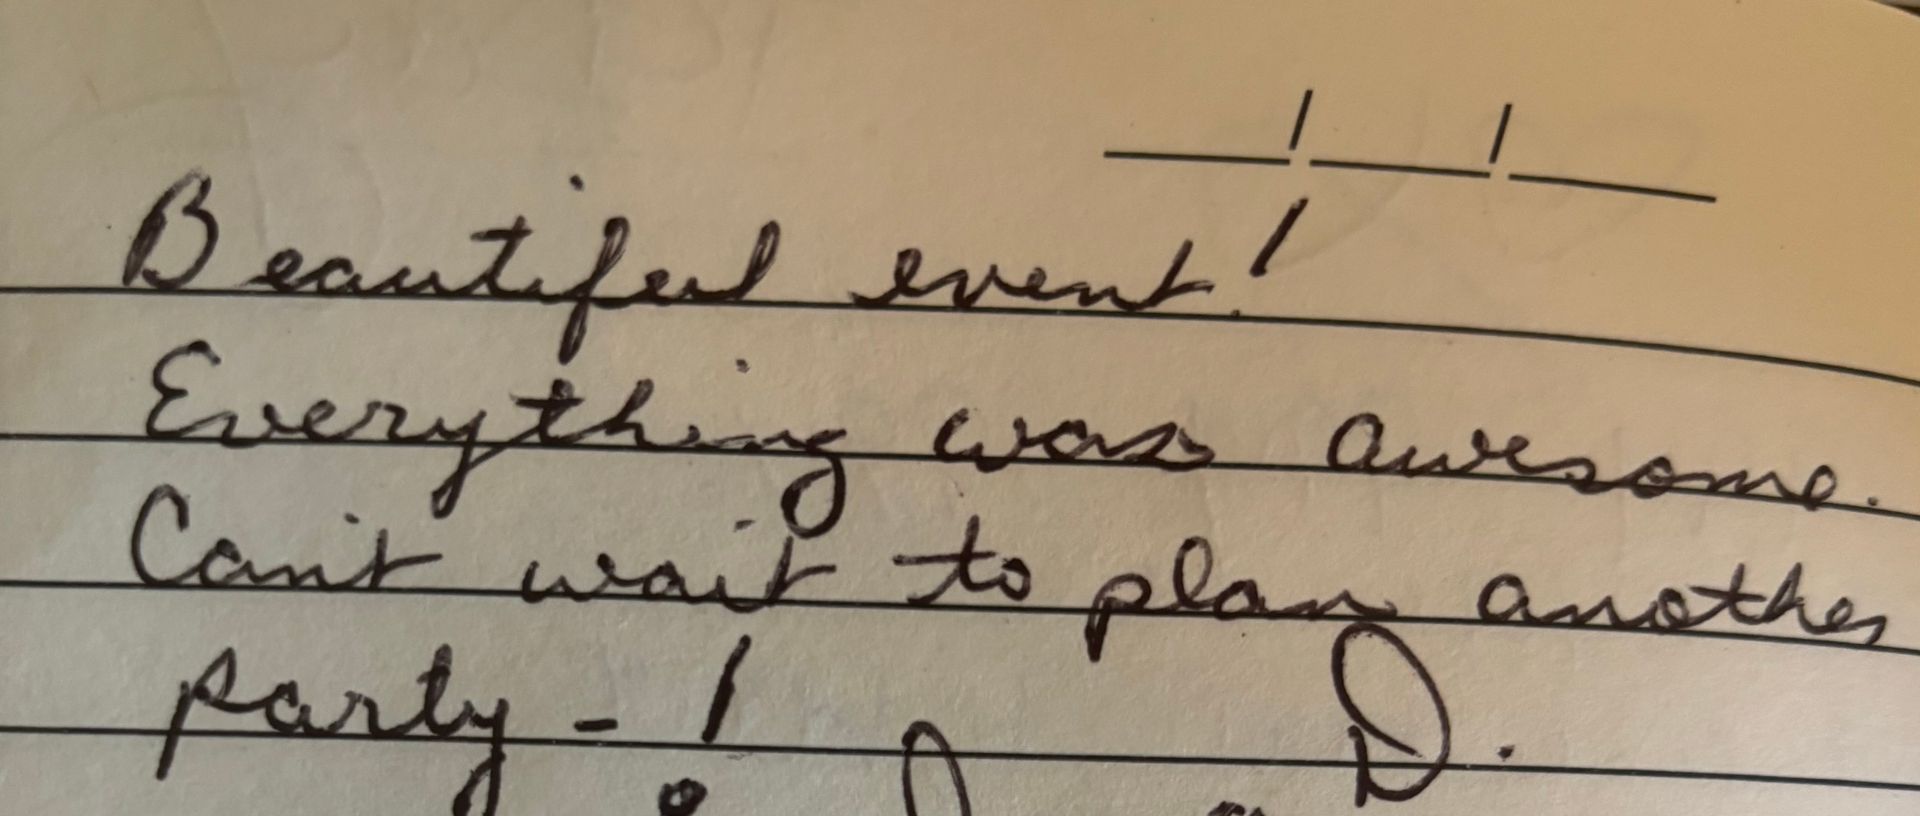 Beautiful event!
Everything was awesome.
Can't wait to plan another
party - ! D.